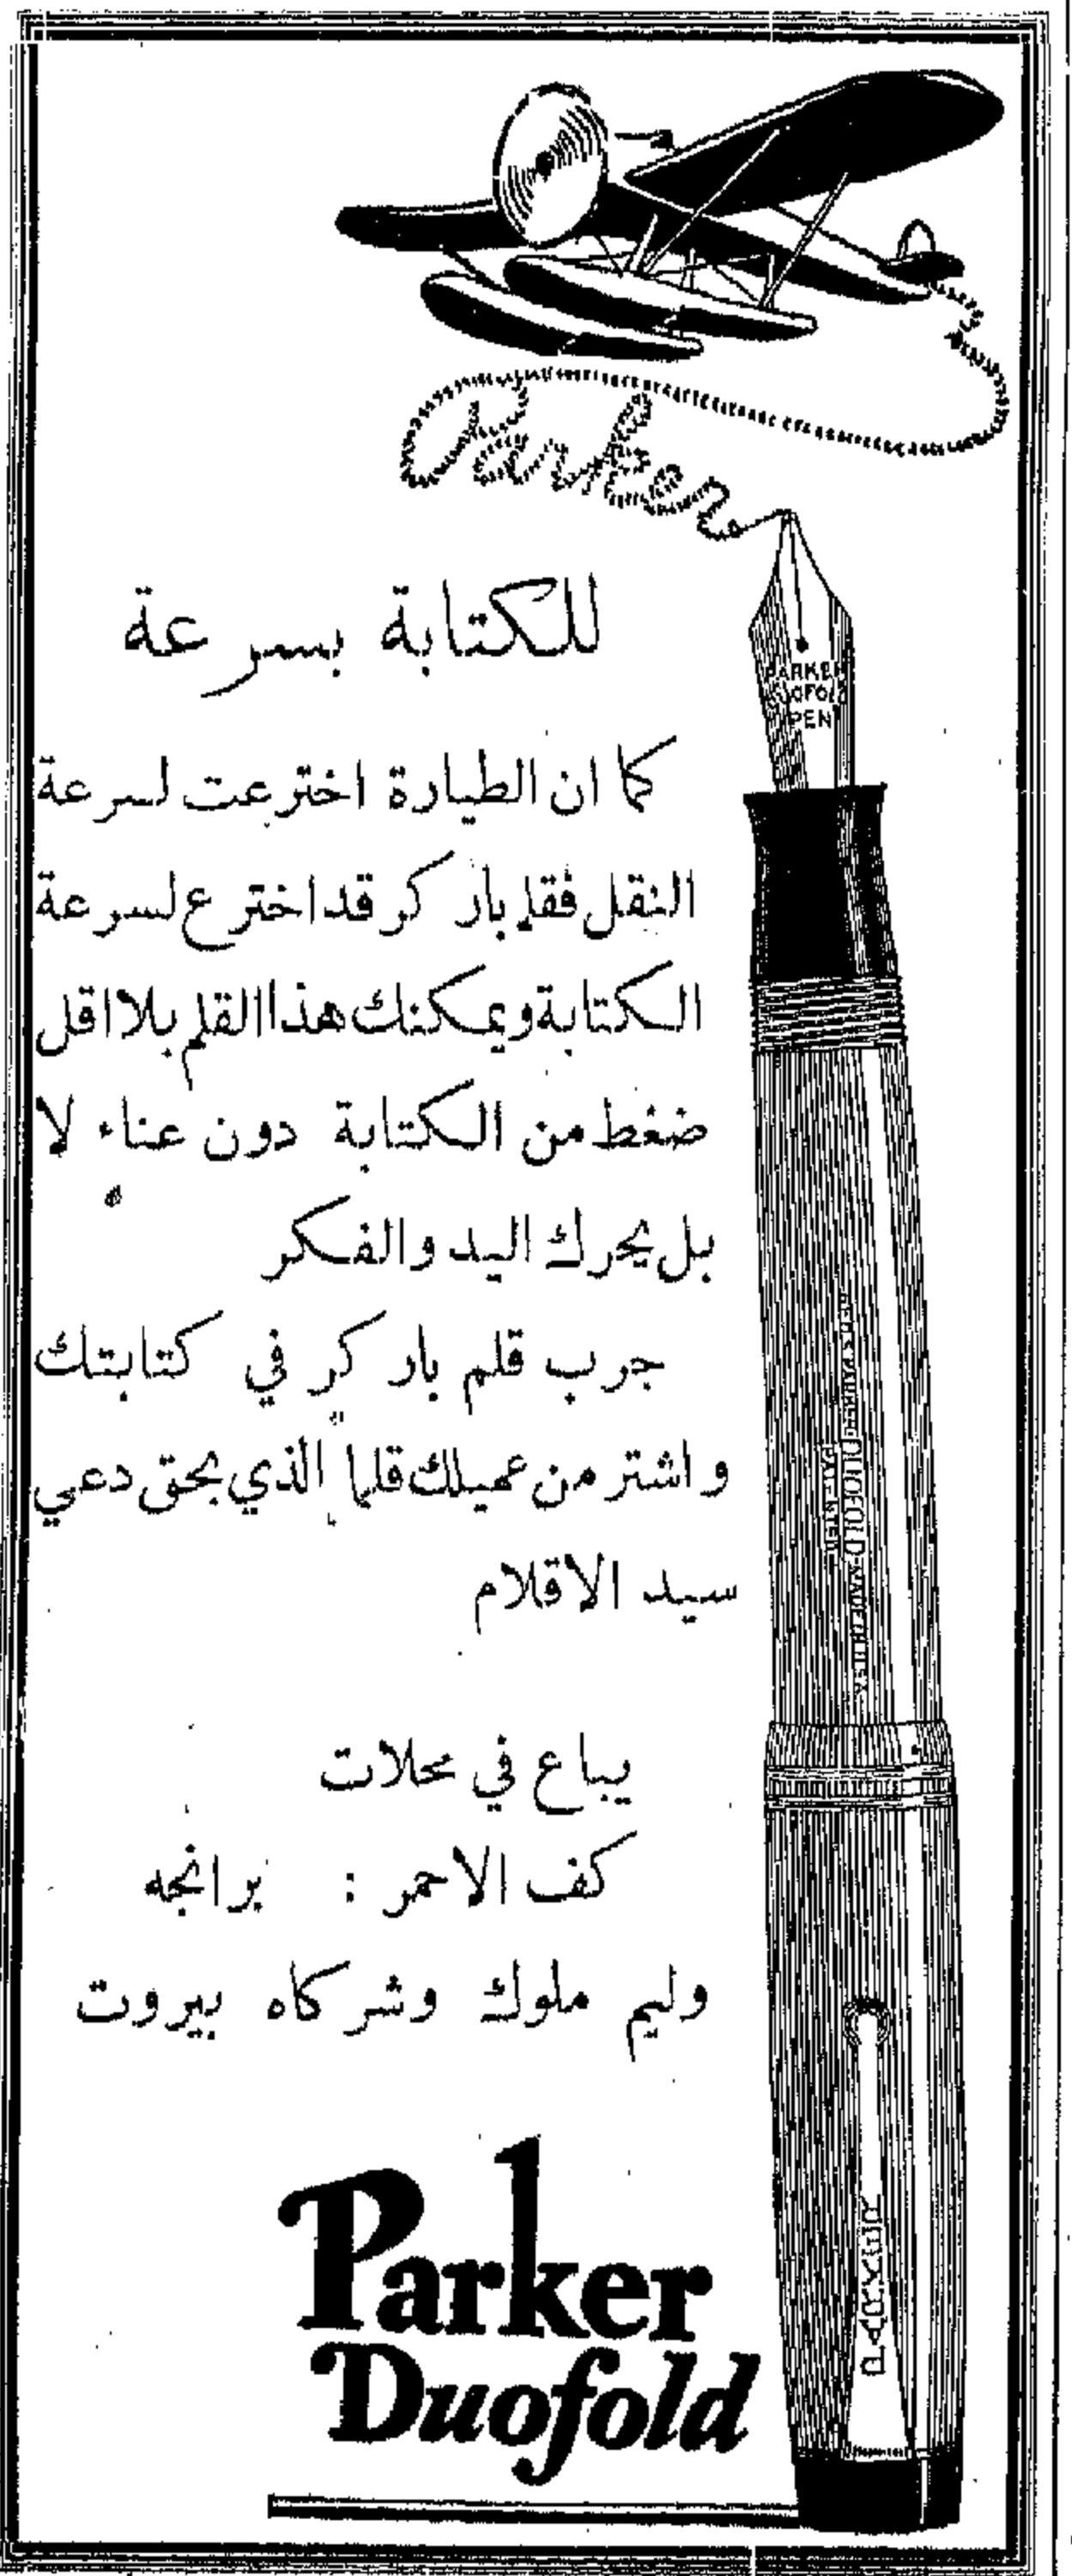 Parker
PARKER
DUOFOLD
PEN
للكتابة بسرعة
كما ان الطيارة اخترعت لسرعة
النقل فقلم باركر قد اخترع لسرعة
الكتابة ويمكنك هذا القلم بلا اقل
ضغط من الكتابة دون عناء لا
بل يحرك اليد والفكر
جرب قلم باركر في كتابتك
واشتر من عميلك قلما الذي بحق دعي
سيد الاقلام
DUOFOLD MADE IN U.S.A.
يباع في محلات
كف الاحمر : برانجه
وليم ملوك وشركاه بيروت
PARKER
Parker
Duofold